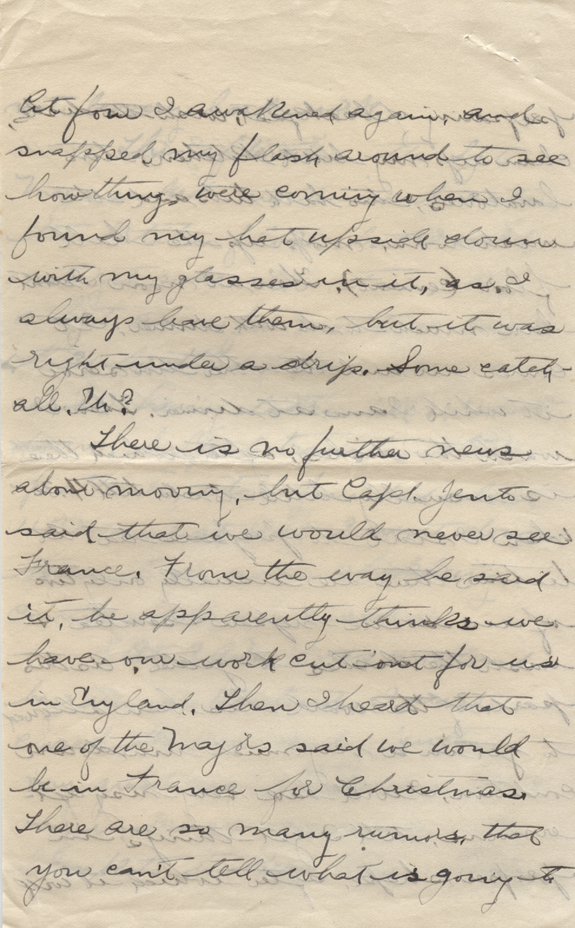 At four I awakened again, and
snapped my flash around to see
how things were coming when I
found my hat upside down
with my glasses in it, as I
always have them, but it was
right under a drip. Some catch-
all. Eh?
There is no further news
about moving, but Capt. Jento
said that we would never see
France. From the way he said
it, he apparently thinks we
have our work cut out for us
in England. Then I heard that
one of the Majors said we would
be in France for Christmas.
There are so many rumors, that
you can't tell what is going to